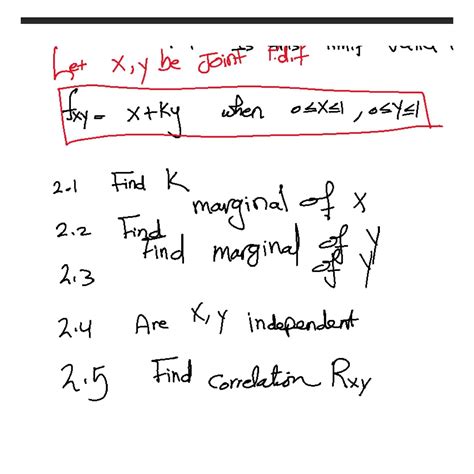 Let x,y be Joint P.d.f
fxy = x+Ky when 0≤x≤1 , 0≤y≤1
2.1 Find K
2.2 Find marginal of x
2.3 Find marginal of y
of y
2.4 Are x,y independent
2.5 Find correlation Rxy